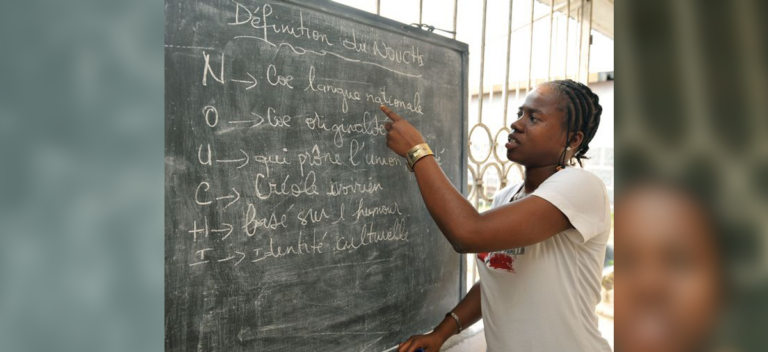 Définition du NOUCHI
N → Une langue nationale
O → Une originalité
U → qui prône l'union
C → Créole ivoirien
H → basé sur l'humour
I → Identité culturelle